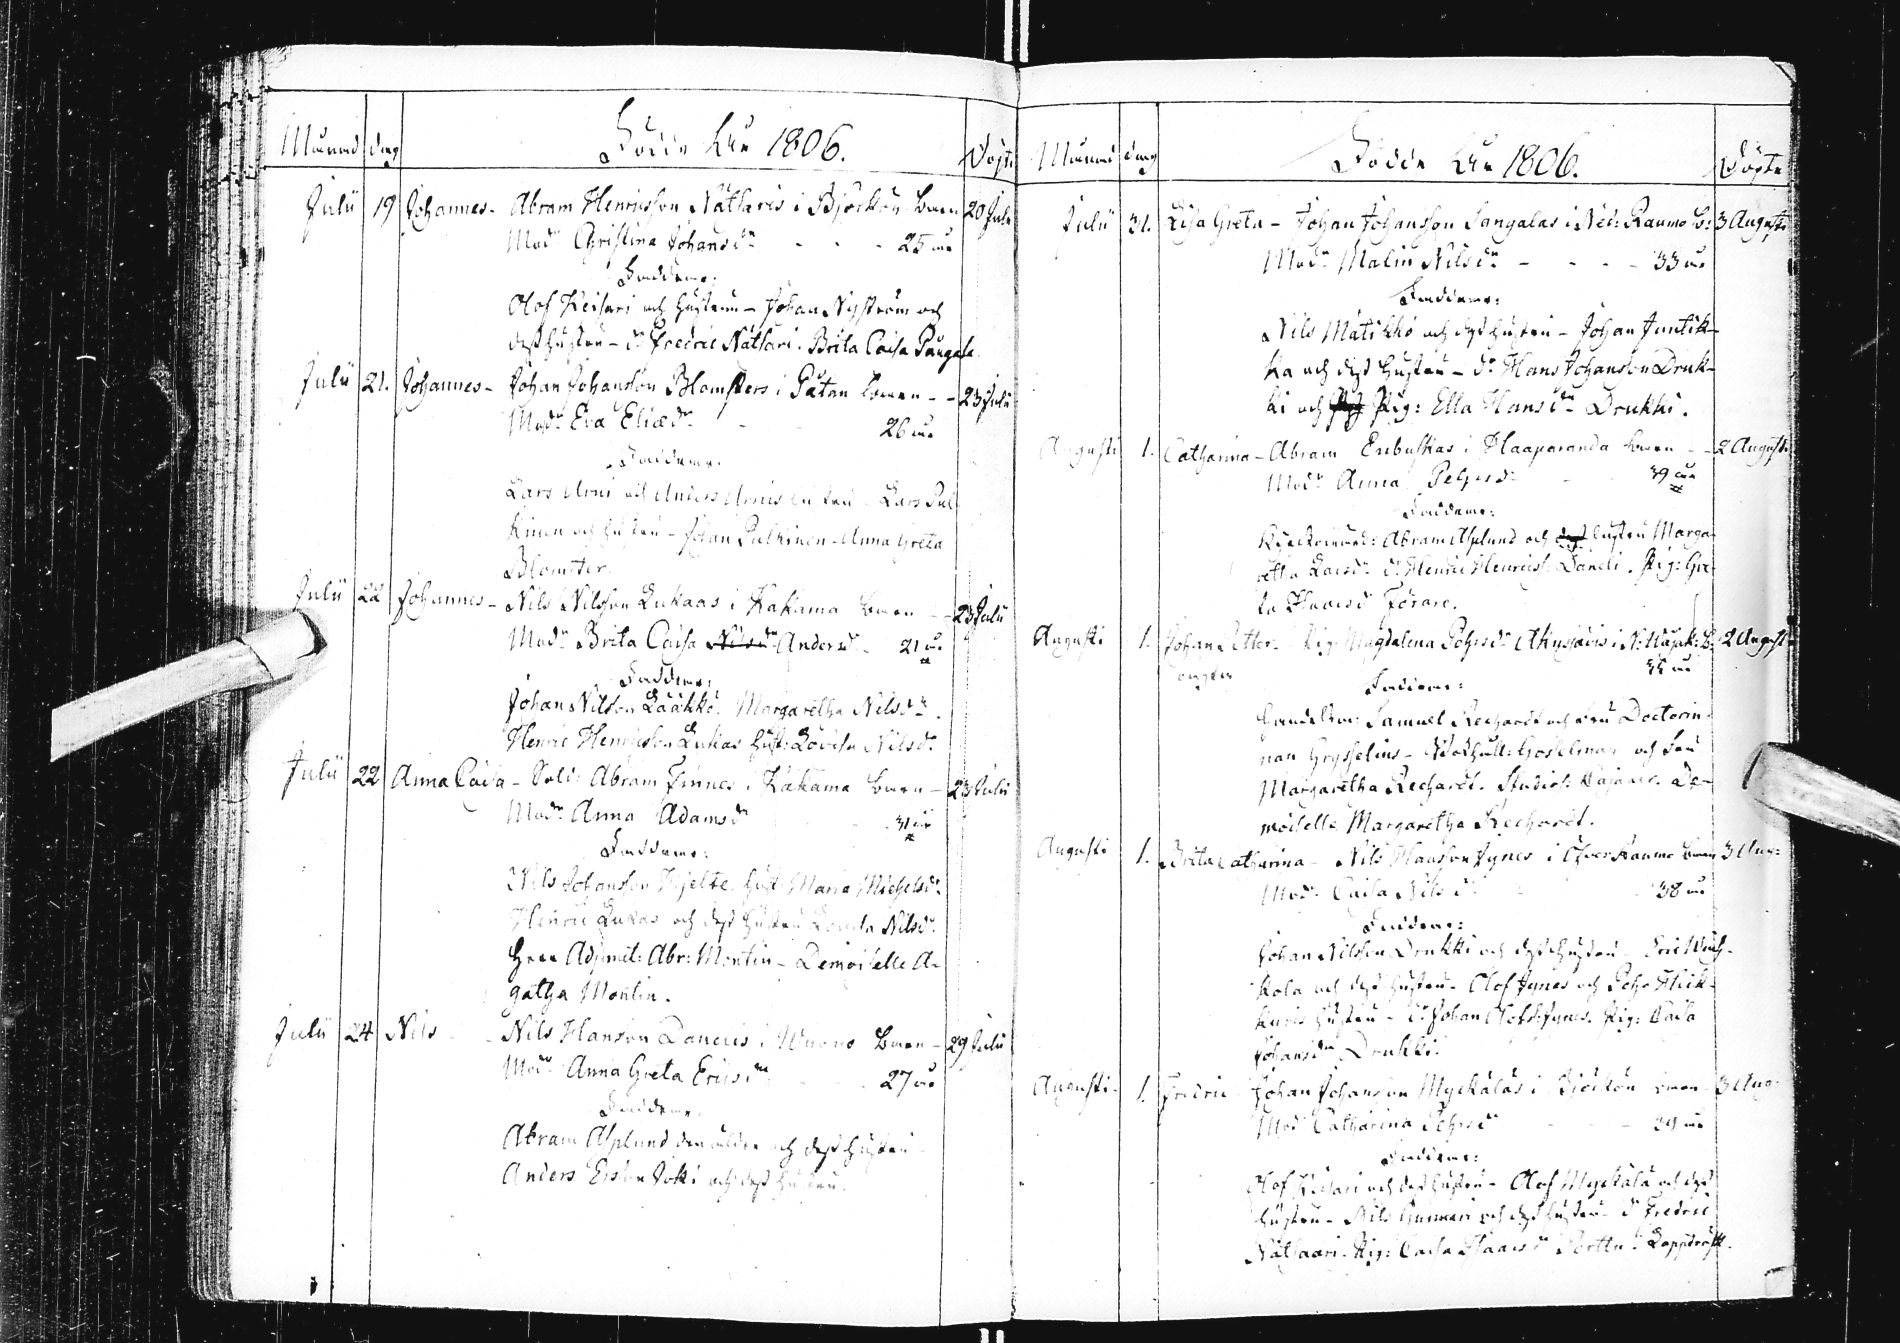 Månad dag Födde År 1806. Döpte
Julii 19 Johannes- Abram Henricsson Nätsaris i Björkön barn 20 Julii
Modr Christina Johansdr - - - 25 år
Faddrar:
Olof Keisari och hustru - Johan Nyström och
dess hustru - dr Fredric Nätsari. Brita Caisa
Julii 21. Johannes- Johan Johansson Blomsters i byn - 23 Julii
Modr Eva Eliædr - 26 år
Faddrar:
Lars Arni och Anders Arnis hustru - Lars Pul-
kinen och hustru - Johan Pulkinen - Anna Greta
Blomster.
Julii 22 Johannes- Nils Nilsson Lukaas i Kakama byn - 23 Julii
Modr Brita Caisa Nilsdr Andersdr 21 år
Faddrar:
Johan Nilsson Lääkkö. Margaretha Nilsdr.
Henric Henricsson Lukas hust: Lovisa Nilsdr
Julii 22 Anna Caisa - Sold: Abram Finnes i Kakama byn - 23 Julii
Modr Anna Adamsdr 31 år
Faddrar:
Nils Johansson Hjelte hust Maria Michelsdr
Henric Lukas och dess hustru Lovisa Nilsdr
Herr Adjunct: Abr: Montin - Demoiselle A-
gatha Montin.
Julii 24 Nils - Nils Hansson Daneiis i Wuono byn - 29 Julii
Modr Anna Greta Ericsdr 27 år
Faddrar:
Abram Asplund den äldre och dess hustru
Anders Ersson Joki och dess hustru.
Månad dag Födde År 1806. Döpte
Julii 31. Lisa Greta - Johan Johansson Sangalas i Ned: Raumo b: 3 Augusti
Modr Malin Nilsdr - - - 33 år
Faddrar:
Nils Mätikkö och dess hustru - Johan Juntik-
ka och dess hustru - dr Hans Johansson Druk-
ki och Pig: Ella Hansdr Drukki.
Augusti 1. Catharina - Abram Enbuskas i Haaparanda byn - 2 Augusti
Modr Anna Pehrsdr 39 år
Faddrar:
Abram Asplund och dess hustru Marga-
retha Larsdr dr Henric Henricss: Daneli. Pig: Gre-
ta Förare.
Augusti 1. Johan Petter - Pig: Magdalena Pehrsdr i N: b: 2 Augusti
oägta år
Faddrar:
Handelsm: Samuel Rechardt och Fru Doctorin-
nan Grysselius - och Fru
Margaretha Rechardt. Studios: De-
moiselle Margaretha Rechardt.
Augusti 1. Brita Catharina - Nils Hansson Fynes i Öfver Raumo byn 3 Aug:
Modr Caisa Nilsdr 38 år
Faddrar:
Johan Nilsson Drukki och dess hustru - Eric
kola och dess hustru - Olof Fynes och Pehr
hustru - dr Johan Olofss: Fynes. Pig: Caisa
Johansdr Drukki.
Augusti - 1. Fredric Johan Johansson Myckäläs i Björkön byn 3 Aug:
Modr Catharina Pehrsdr - - - år
Faddrar:
Olof Keisari och dess hustru - Olof Myckälä och dess
hustru - Nils och dess hustru - dr Fredric
Nätsaari. Pig: Caisa Isaacsdr